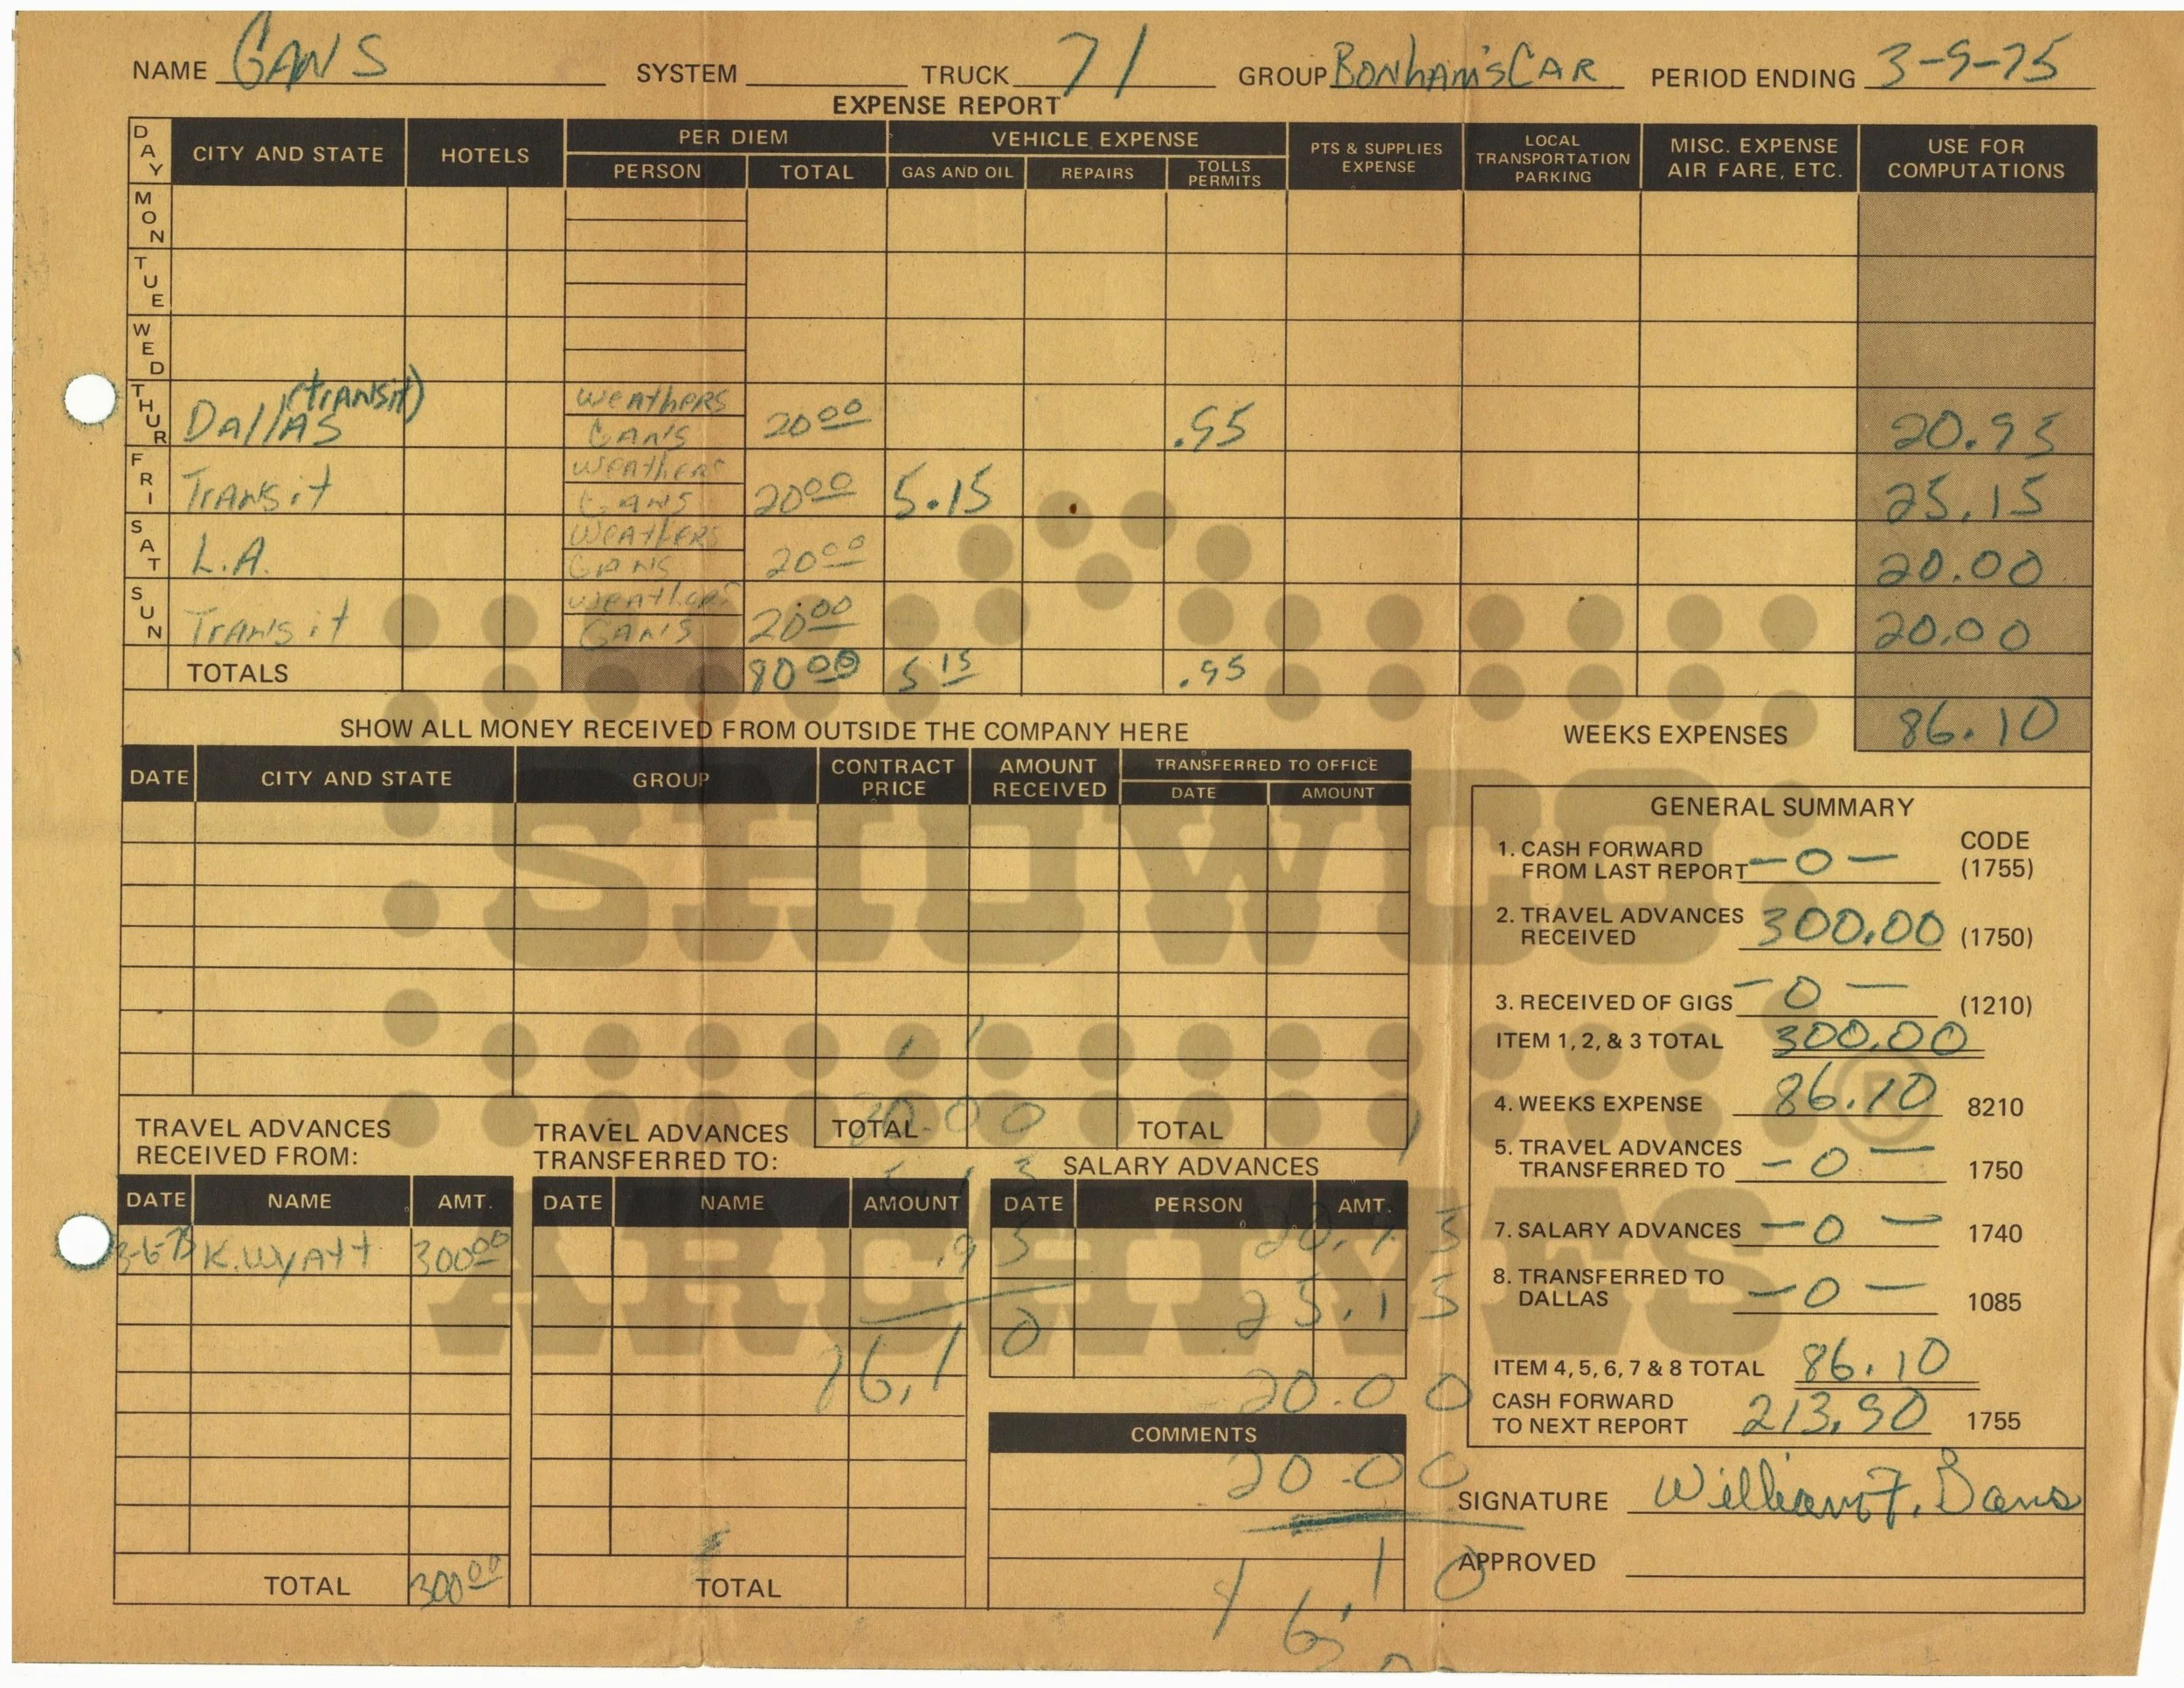 NAME GANS SYSTEM TRUCK 71 GROUP BONHAM'S CAR PERIOD ENDING 3-9-75
EXPENSE REPORT
DAY CITY AND STATE HOTELS PER DIEM VEHICLE EXPENSE PTS & SUPPLIES EXPENSE LOCAL TRANSPORTATION PARKING MISC. EXPENSE AIR FARE, ETC. USE FOR COMPUTATIONS
PERSON TOTAL GAS AND OIL REPAIRS TOLLS PERMITS
MON
TUE
WED
THUR DallAS (trANSit) WeAtheRS GANS 20 00 .95 20.95
FRI TrANSit WeAtheRS GANS 20 00 5.15 25.15
SAT L.A. WeAtheRS GANS 20 00 20.00
SUN TrANSit WeAtheRS GANS 20 00 20.00
TOTALS 80 00 5 15 .95
WEEKS EXPENSES 86.10
SHOW ALL MONEY RECEIVED FROM OUTSIDE THE COMPANY HERE
DATE CITY AND STATE GROUP CONTRACT PRICE AMOUNT RECEIVED TRANSFERRED TO OFFICE
DATE AMOUNT
TOTAL TOTAL
SHOWCO
ARCHIVES
®
TRAVEL ADVANCES
RECEIVED FROM:
DATE NAME AMT.
3-6-75 K. WyAtt 300 00
TOTAL 300 00
TRAVEL ADVANCES
TRANSFERRED TO:
DATE NAME AMOUNT
TOTAL
SALARY ADVANCES
DATE PERSON AMT.
COMMENTS
20.00
20.00
GENERAL SUMMARY
CODE
1. CASH FORWARD
FROM LAST REPORT -0- (1755)
2. TRAVEL ADVANCES
RECEIVED 300.00 (1750)
3. RECEIVED OF GIGS -0- (1210)
ITEM 1, 2, & 3 TOTAL 300.00
4. WEEKS EXPENSE 86.10 8210
5. TRAVEL ADVANCES
TRANSFERRED TO -0- 1750
7. SALARY ADVANCES -0- 1740
8. TRANSFERRED TO
DALLAS -0- 1085
ITEM 4, 5, 6, 7 & 8 TOTAL 86.10
CASH FORWARD
TO NEXT REPORT 213.90 1755
SIGNATURE William F. Gans
APPROVED